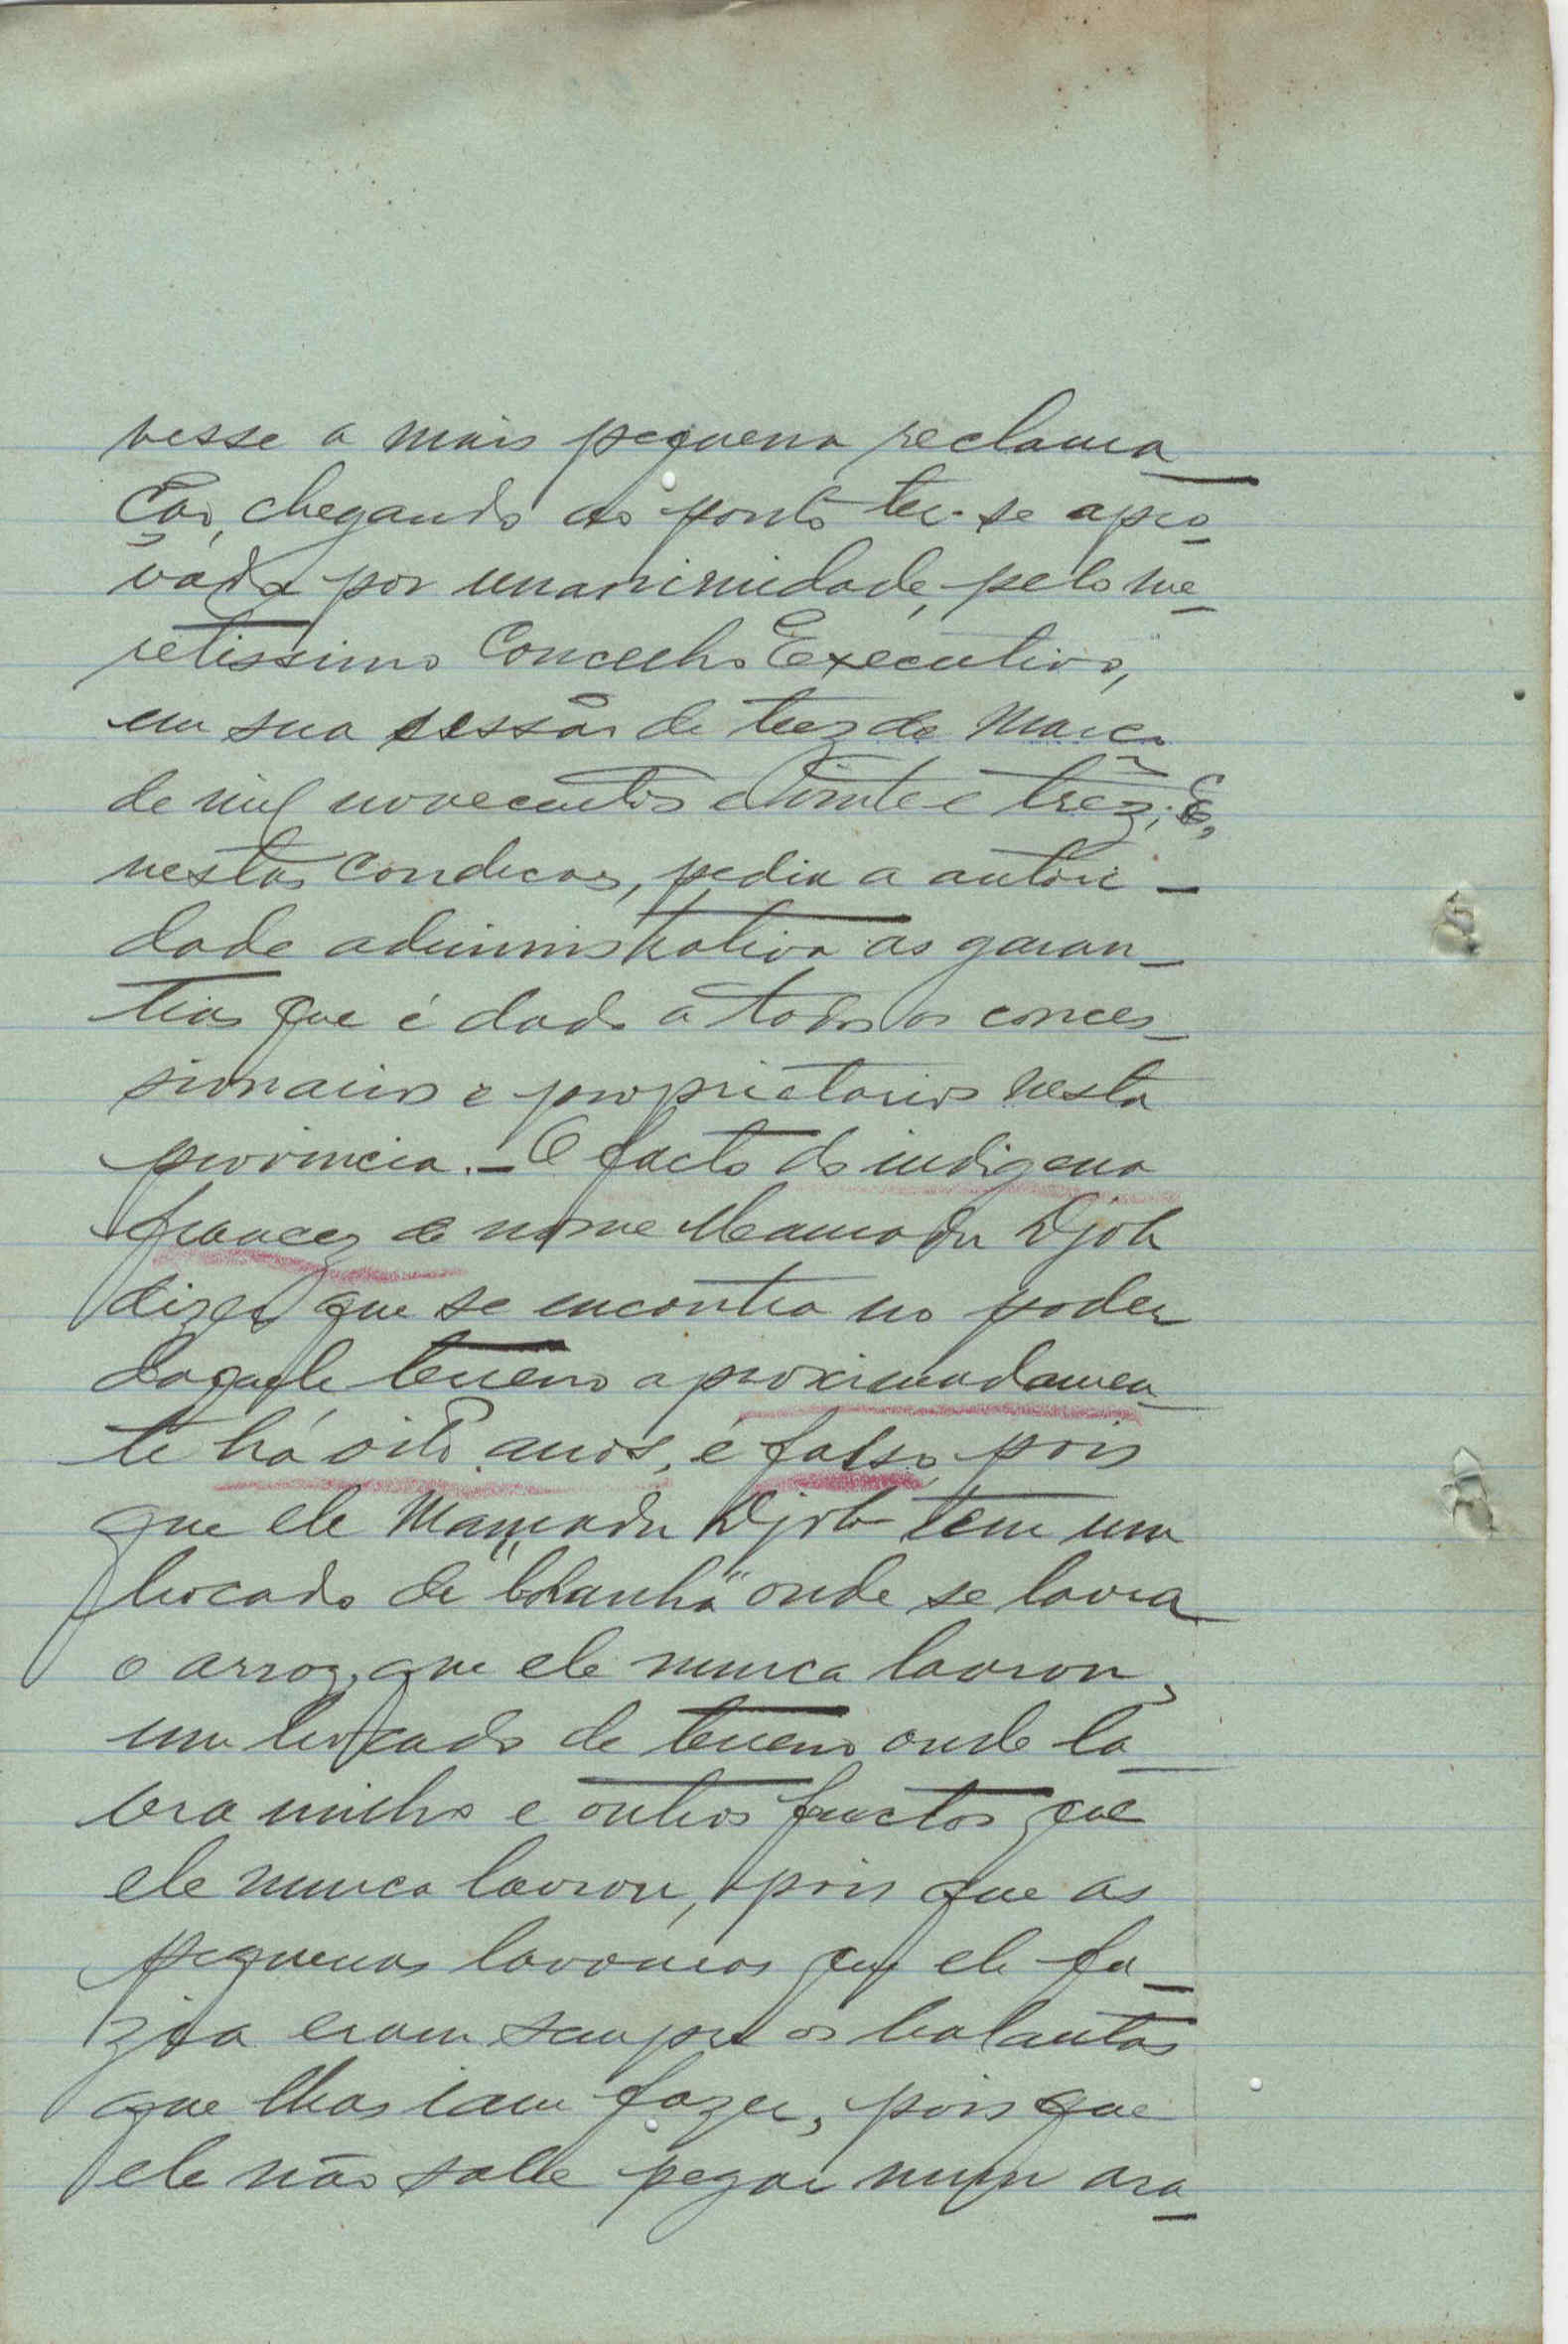 vesse a mais pequena reclama-
ção, chegando ao ponto ter-se apro-
vada por unanimidade, pelo me-
retissimo Concelho Executivo,
em sua sessão de trez de Março
de mil novecentos e vinte e trez; E,
nestas condições, pedia a autori-
dade administrativa as garan-
tias que é dado a todos os conces-
sionarios e proprietarios nesta
provincia. – O facto do indigena
francez de nome Mamadu Djob
dizer que se encontra no poder
daquele terreno aproximadamen-
te há oito anos, é falso, pois
que ele Mamadu Djob tem um
bocado de "bolanha" onde se lavra
o arroz, que ele nunca lavrou,
um bocado de terreno onde la-
vra milho e outros fructos que
ele nunca lavrou, pois que as
pequenas lavouras que ele fa-
zia eram sempre os balantas
que lhas iam fazer, pois que
ele não sabe pegar num ara-